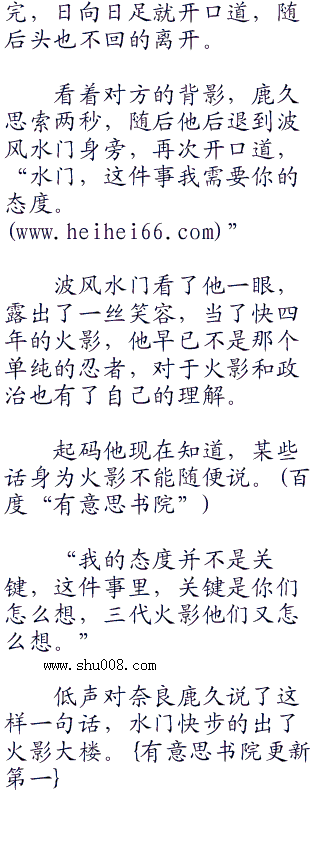 完，日向日足就开口道，随
后头也不回的离开。
看着对方的背影，鹿久
思索两秒，随后他后退到波
风水门身旁，再次开口道，
“水门，这件事我需要你的
态度。
(www.heihei66.com)”
波风水门看了他一眼，
露出了一丝笑容，当了快四
年的火影，他早已不是那个
单纯的忍者，对于火影和政
治也有了自己的理解。
起码他现在知道，某些
话身为火影不能随便说。（百
度“有意思书院”）
“我的态度并不是关
键，这件事里，关键是你们
怎么想，三代火影他们又怎
么想。”
www.shu008.com
低声对奈良鹿久说了这
样一句话，水门快步的出了
火影大楼。{有意思书院更新
第一}